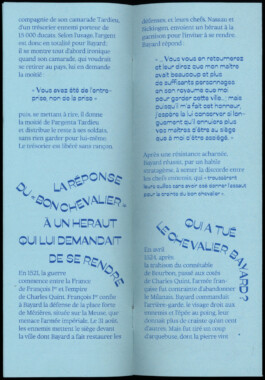 compagnie de son camarade Tardieu,
d'un trésorier ennemi porteur de
15 000 ducats. Selon l'usage, l'argent
est donc en totalité pour Bayard ;
il se montre alors d'abord ironique
quand son camarade, qui voudrait
se refaire un peu, lui en demande
la moitié :
« Vous avez été de l'entre-
prise, non de la prise »
puis, se mettant à rire, il donne
la moitié de l'argent à Tardieu
et distribue le reste à ses soldats,
sans rien garder pour lui-même.
Le trésorier est libéré sans rançon.
LA RÉPONSE
DU « BON CHEVALIER »
À UN HERAUT
QUI LUI DEMANDAIT
DE SE RENDRE
En 1521, la guerre
commence entre la France
de François Iᵉʳ et l'empire
de Charles Quint. François Iᵉʳ confie
à Bayard la défense de la place forte
de Mézières, située sur la Meuse, que
menace l'armée impériale. Le 31 août,
les ennemis mettent le siège devant
la ville dont Bayard a fait restaurer les
défenses, et leurs chefs, Nassau et
Sickingen, envoient un héraut à la
question pour l'inviter à se rendre.
Bayard répond :
« ... Vous vous en retournerez
et leur direz que mon maître
avait beaucoup et plus
de suffisants personnages
en son royaume que moi
pour garder cette ville... mais
puisqu'il m'a fait cet honneur,
j'espère la lui conserver si lon-
guement qu'il ennuiera plus
vos maîtres d'être au siège
que à moi d'être assiégé. »
Après une résistance acharnée,
Bayard réussit, par un habile
stratagème, à semer la discorde entre
les chefs ennemis qui
QUI A TUÉ
LE CHEVALIER BAYARD ?
En avril
1524, après
la trahison du connétable
de Bourbon, passé aux côtés
de Charles Quint, l'armée fran-
çaise est contrainte d'abandonner
le Milanais. Bayard commandait
l'arrière-garde, le visage tourné aux
ennemis et l'épée au poing, leur
donnait plus de crainte qu'un cent
d'autres. Mais fut tiré un coup
d'arquebuse, dont la pierre le vint